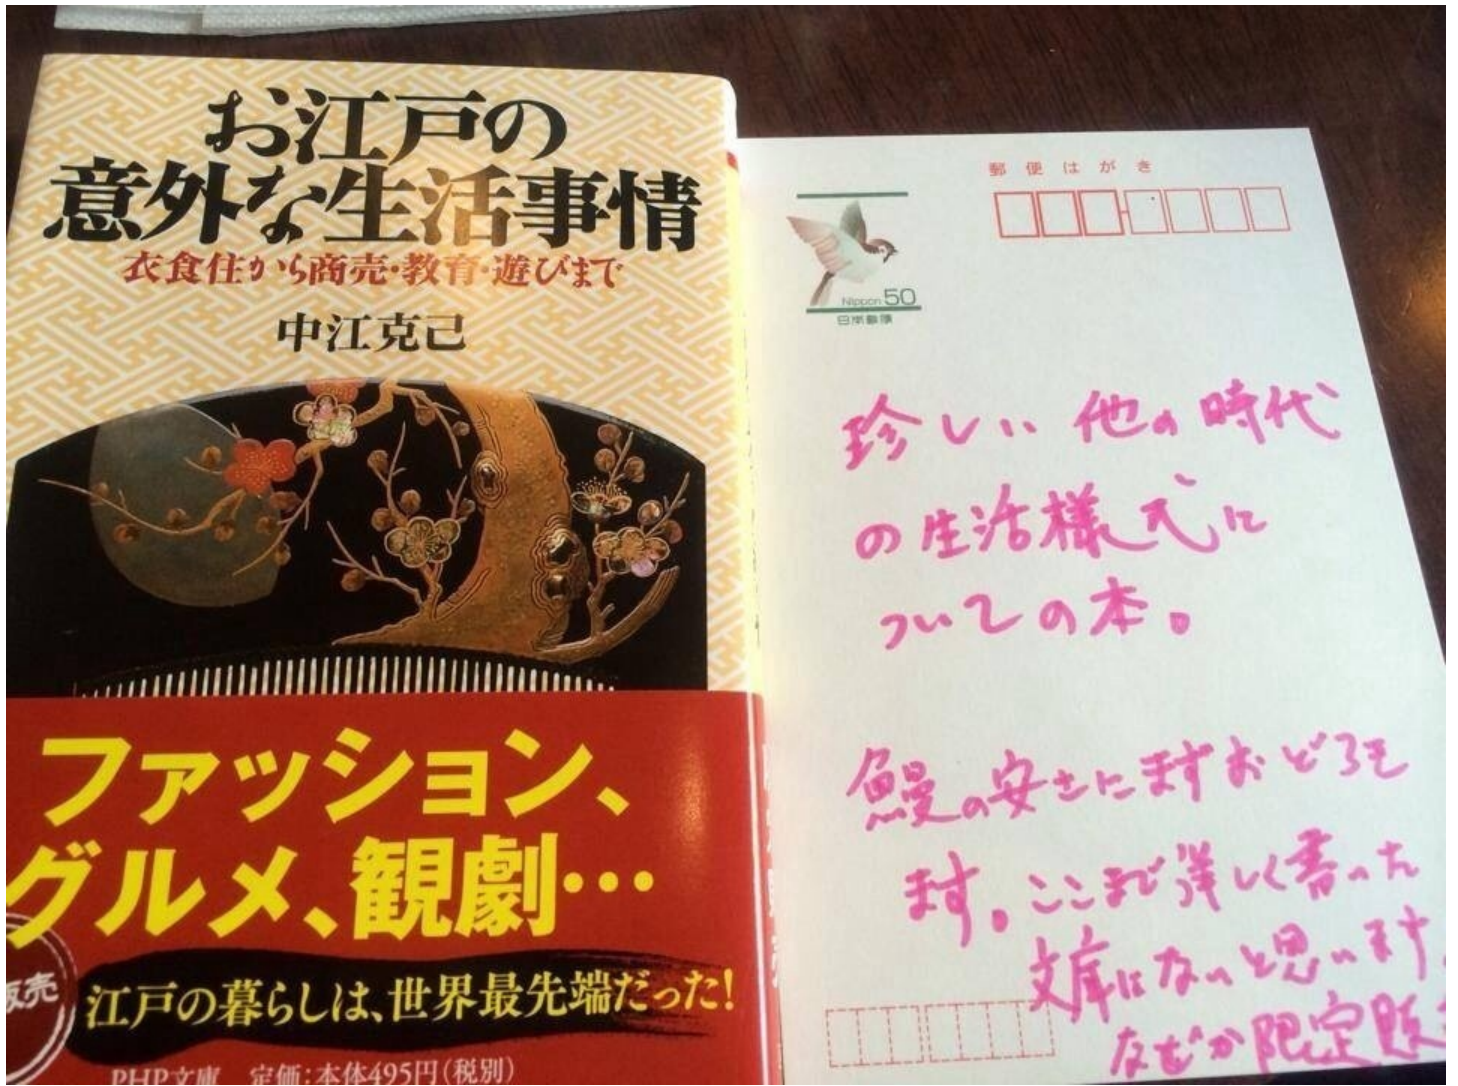 お江戸の
意外な生活事情
衣食住から商売・教育・遊びまで
中江克己
ファッション、
グルメ、観劇…
販売
江戸の暮らしは、世界最先端だった!
PHP文庫 定価:本体495円(税別)
郵便はがき
Nippon 50
日本郵便
珍しい他の時代
の生活様式に
ついての本。
鰻の安さにまずおどろき
ます。ここまで詳しく書いた
文庫はないと思います。
なぜか限定販